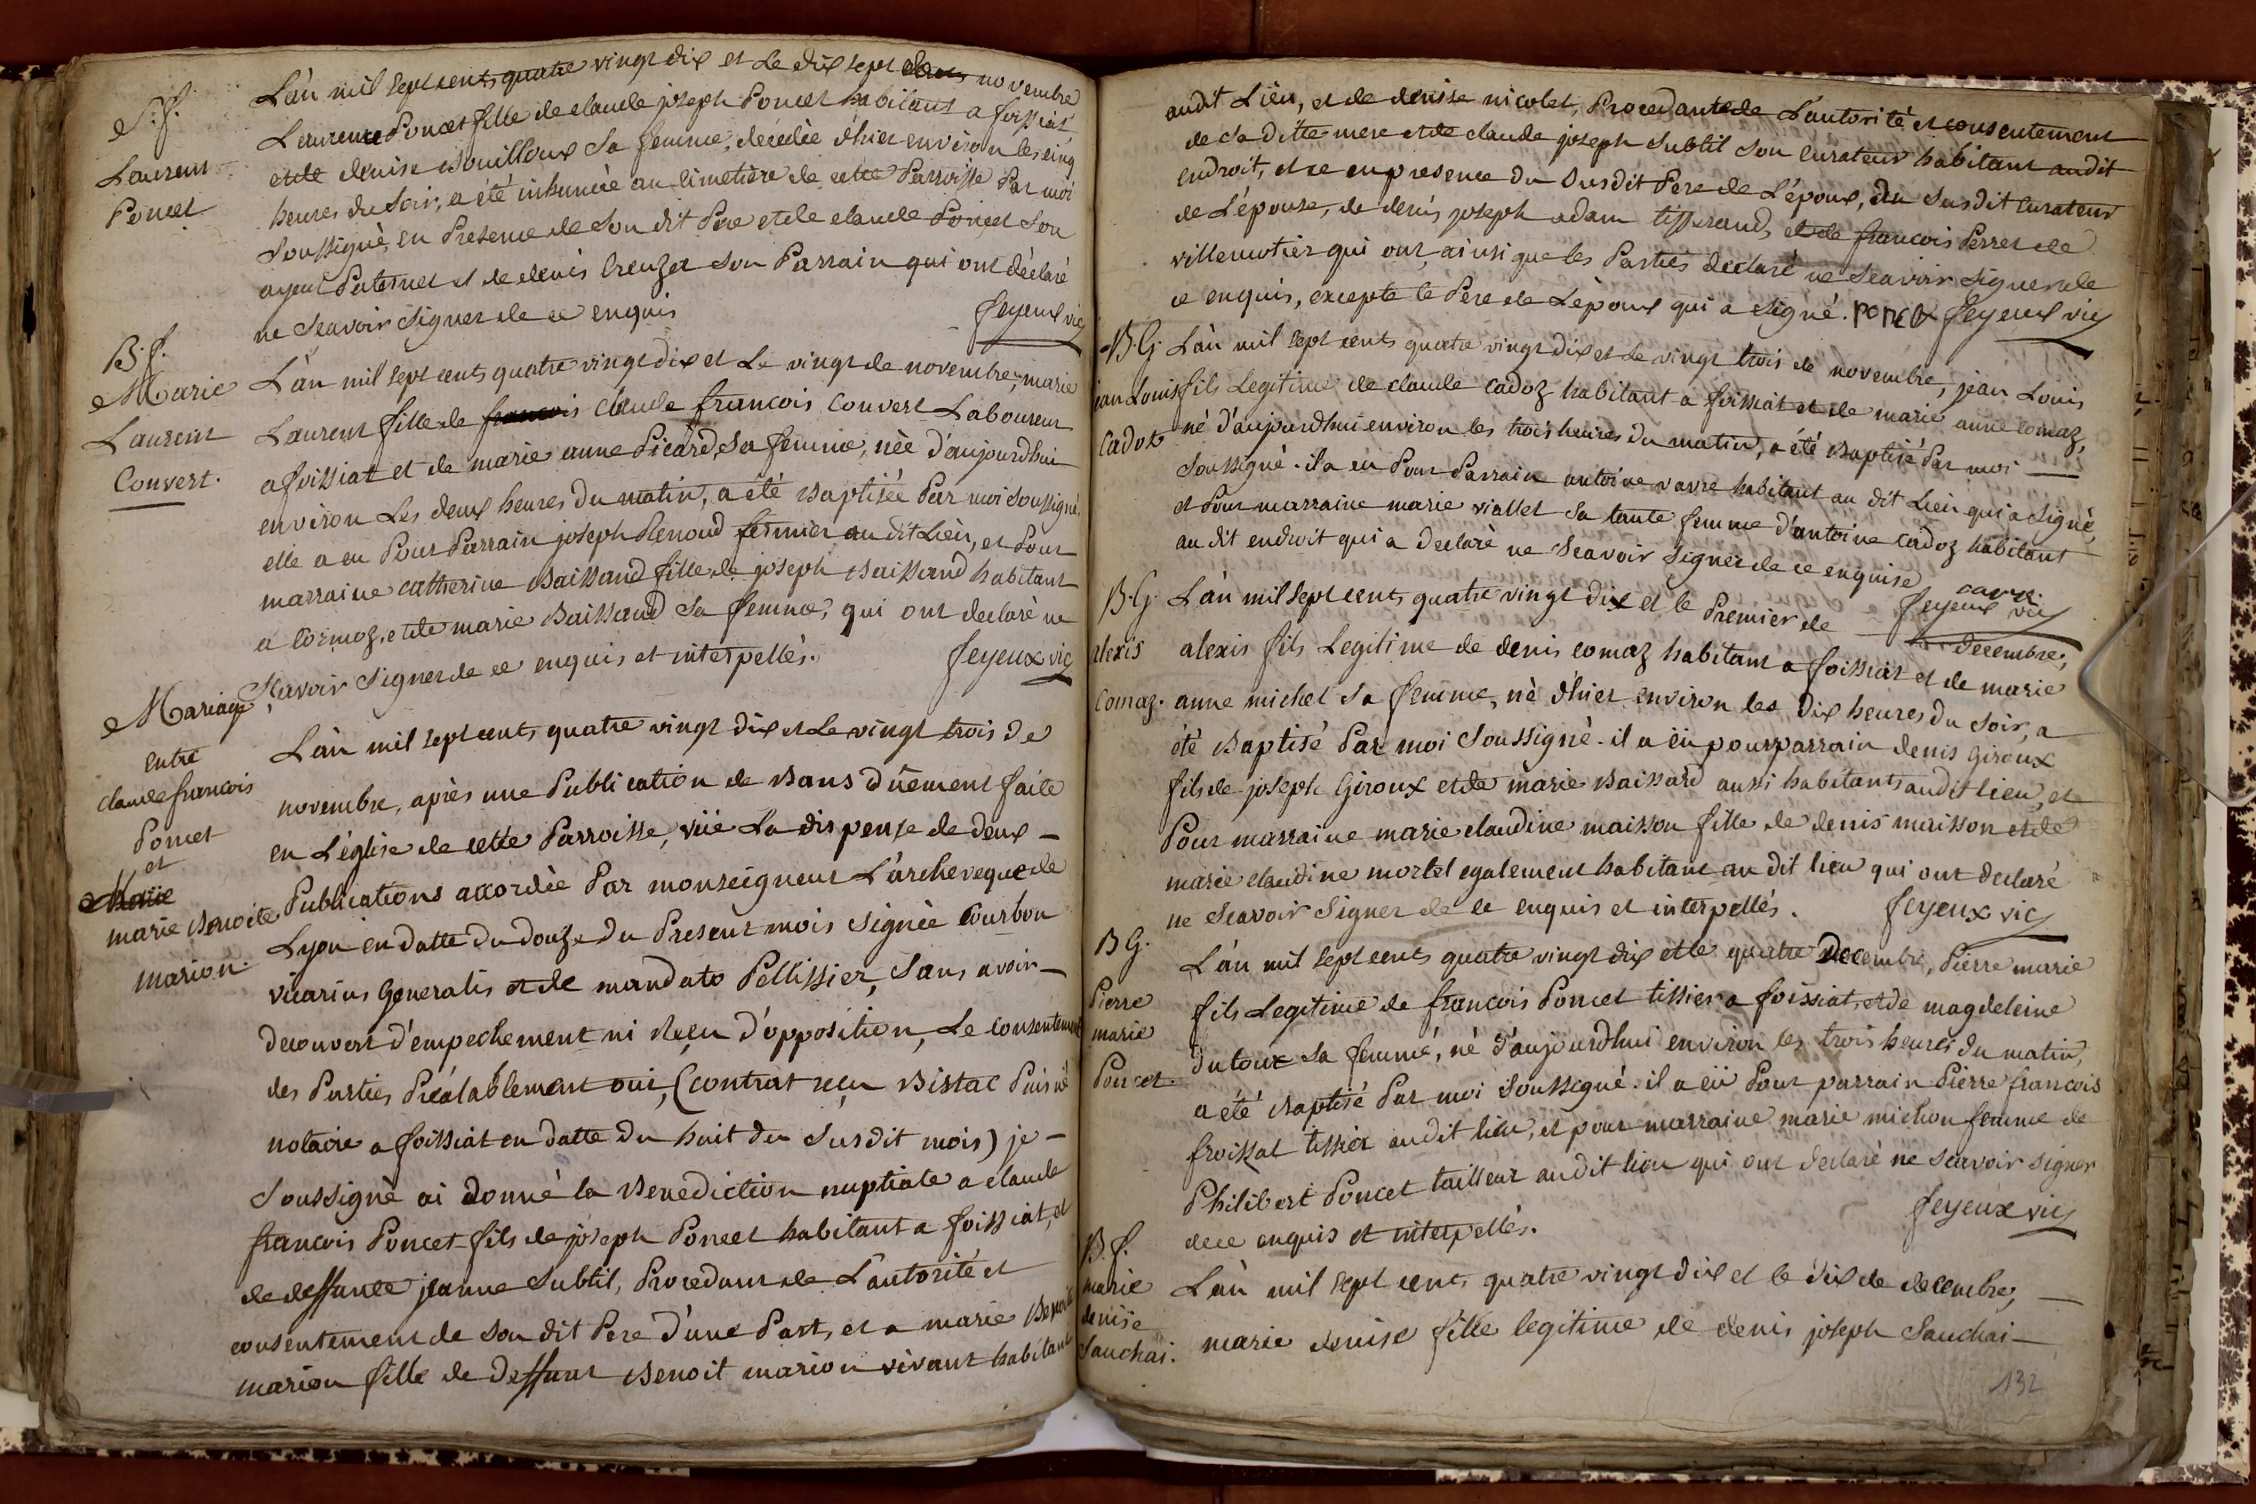 S. f.
Laurent
Poncet
L'an mil sept cents quatre vingt dix et Le dix sept novembre
Laurence Poncet fille de claude joseph Poncet habitant a foissiat
et de denise Bouilloux Sa femme, décédée d'hier environ les cinq
heures du Soir, a été inhumée au cimetiere de cette Parroisse Par moi
Soussigné, en Presence de Son dit Pere et de claude Poncet Son
ayeul Paternel et de denis Creuzet Son Parrain qui ont déclaré
ne Scavoir Signer de ce enquis
feyeux vic
B. f.
Marie
Laurent
Convert.
L'an mil sept cents quatre vingt dix et Le vingt de novembre, marie
Laurent fille de francois claude francois Convert Laboureur
a foissiat et de marie anne Picard, Sa femme, née d'aujourdhui
environ Les deux heures du matin, a été Baptisée Par moi Soussigné,
elle a eu Pour Parrain joseph Renoud fermier au dit Lieu, et Pour
marraine catherine Baissard fille de joseph Baissard habitant
a Cormoz, et de marie Baissard Sa femme, qui ont declaré ne
Scavoir Signer de ce enquis et interpellés.
feyeux vic
Mariage
entre
claude francois
Poncet
et
Marie
marie Benoite
marion.
L'an mil sept cents quatre vingt dix et Le vingt trois de
novembre, après une Publication de Bans dûement faite
en L'église de cette Parroisse, vüe La dispense de deux
Publications accordée Par monseigneur L'archeveque de
Lyon en datte du douze du Present mois Signée Courbon
vicarius Generalis et de mandato Pellissier, Sans avoir
decouvert d'empechement ni Reçu d'opposition, Le consentement
des Parties Préalablement oui, (contrat reçu Bistac Puisné
notaire a foissiat en datte du huit du Susdit mois) je
Soussigné ai donné la Benediction nuptiale a claude
francois Poncet fils de joseph Poncet habitant a foissiat, et
de deffunte jeanne Subtil, Procedant de L'autorité et
consentement de Son dit Pere d'une Part, et a marie Benoite
marion fille de deffunt Benoit marion vivant habitant
audit Lieu, et de denise nicolet, Procedante de L'autorité et consentement
de Sa ditte mere et de claude joseph Subtil Son Curateur habitant audit
endroit, et ce en presence du Susdit Pere de L'époux, du Susdit Curateur
de L'épouse, de denis joseph adam tisserand, et de francois Perret de
villemotier qui ont, ainsi que les Parties declaré ne Scavoir Signer de
ce enquis, excepte le Pere de L'époux qui a Signé. Poncet feyeux vic
B. G.
jean Louis
Cadoz
L'an mil sept cents quatre vingt dix et Le vingt trois de novembre, jean Louis
fils Legitime de claude Cadoz habitant a foissiat et de marie anne Comaz,
né d'aujourdhui environ les trois heures du matin, a été Baptisé Par moi
Soussigné. il a eu Pour Parrain antoine vavre habitant au dit Lieu qui a Signé,
et Pour marraine marie viallet Sa tante femme d'antoine Cadoz habitant
au dit endroit qui a declaré ne Scavoir Signer de ce enquise
feyeux vic
B. G.
alexis
Comaz.
L'an mil sept cents quatre vingt dix et le Premier de decembre,
alexis fils Legitime de denis comaz habitant a foissiat et de marie
anne michel Sa femme, né d'hier environ les dix heures du Soir, a
été Baptisé Par moi Soussigné. il a eü pour parrain denis Giroux
fils de joseph Giroux et de marie Baissard aussi habitants audit lieu, et
Pour marraine marie claudine maisson fille de denis maisson et de
marie claudine mortel egalement habitant au dit lieu qui ont declaré
ne Scavoir Signer de ce enquis et interpellés.
feyeux vic
B G.
Pierre
marie
Poncet.
L'an mil sept cents quatre vingt dix et le quatre Decembre, Pierre marie
fils Legitime de francois Poncet tissier a foissiat, et de magdeleine
dutoux Sa femme, né d'aujourdhui environ les trois heures du matin,
a été Baptisé Par moi Soussigné. il a eü Pour parrain Pierre francois
froissat tissier audit lieu, et pour marraine marie michon femme de
Philibert Poncet tailleur audit lieu qui ont declaré ne Scavoir Signer
de ce enquis et interpellés.
feyeux vic
B. f.
marie
denise
Sauchai.
L'an mil sept cents quatre vingt dix et le dix de decembre,
marie denise fille legitime de denis joseph Sauchai
132